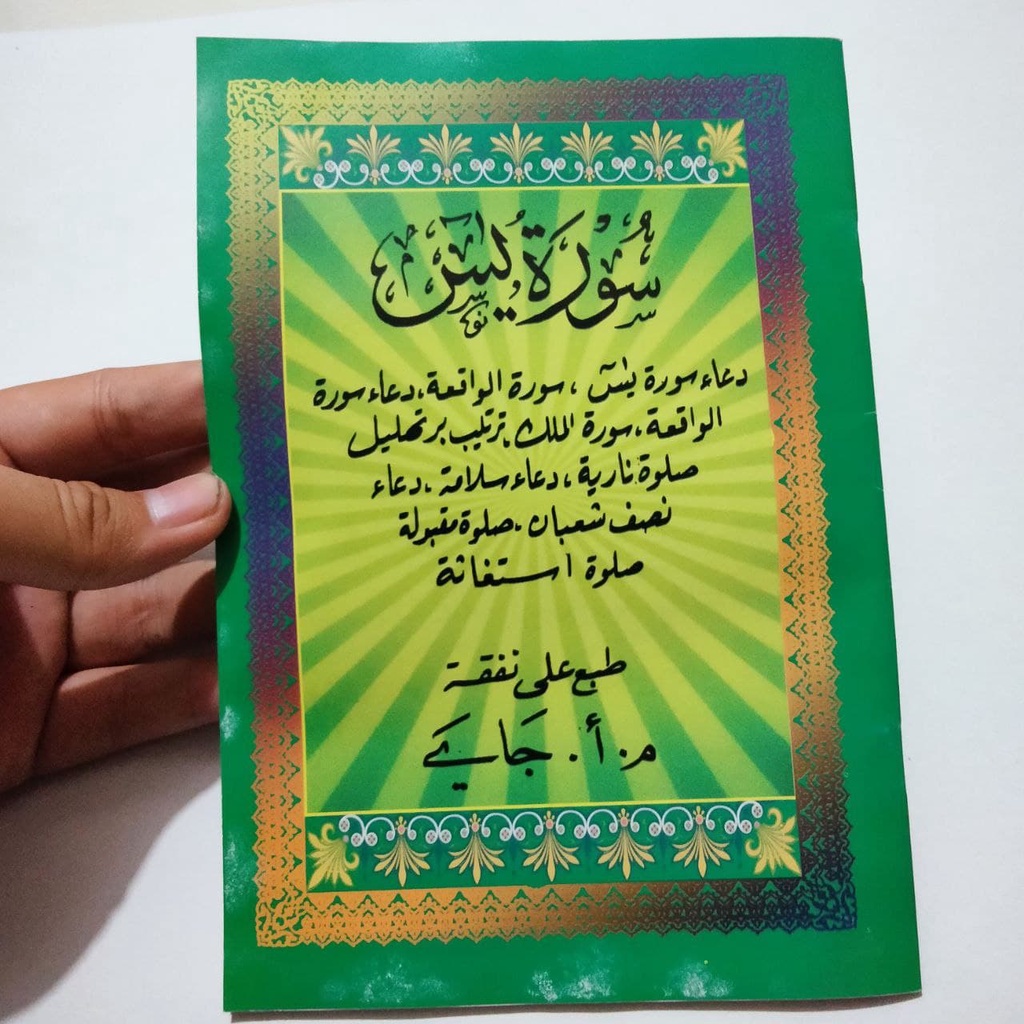 سُوْرَةُ يٰسٓ
دعاء سورة يٰسٓ ، سورة الواقعة ، دعاء سورة
الواقعة ، سورة الملك ، ترتيب برتهليل
صلوة نارية ، دعاء سلامة ، دعاء
نصف شعبان ، صلوة مقبولة
صلوة استغاثة
طبع على نفقة
م. أ. جَايَ